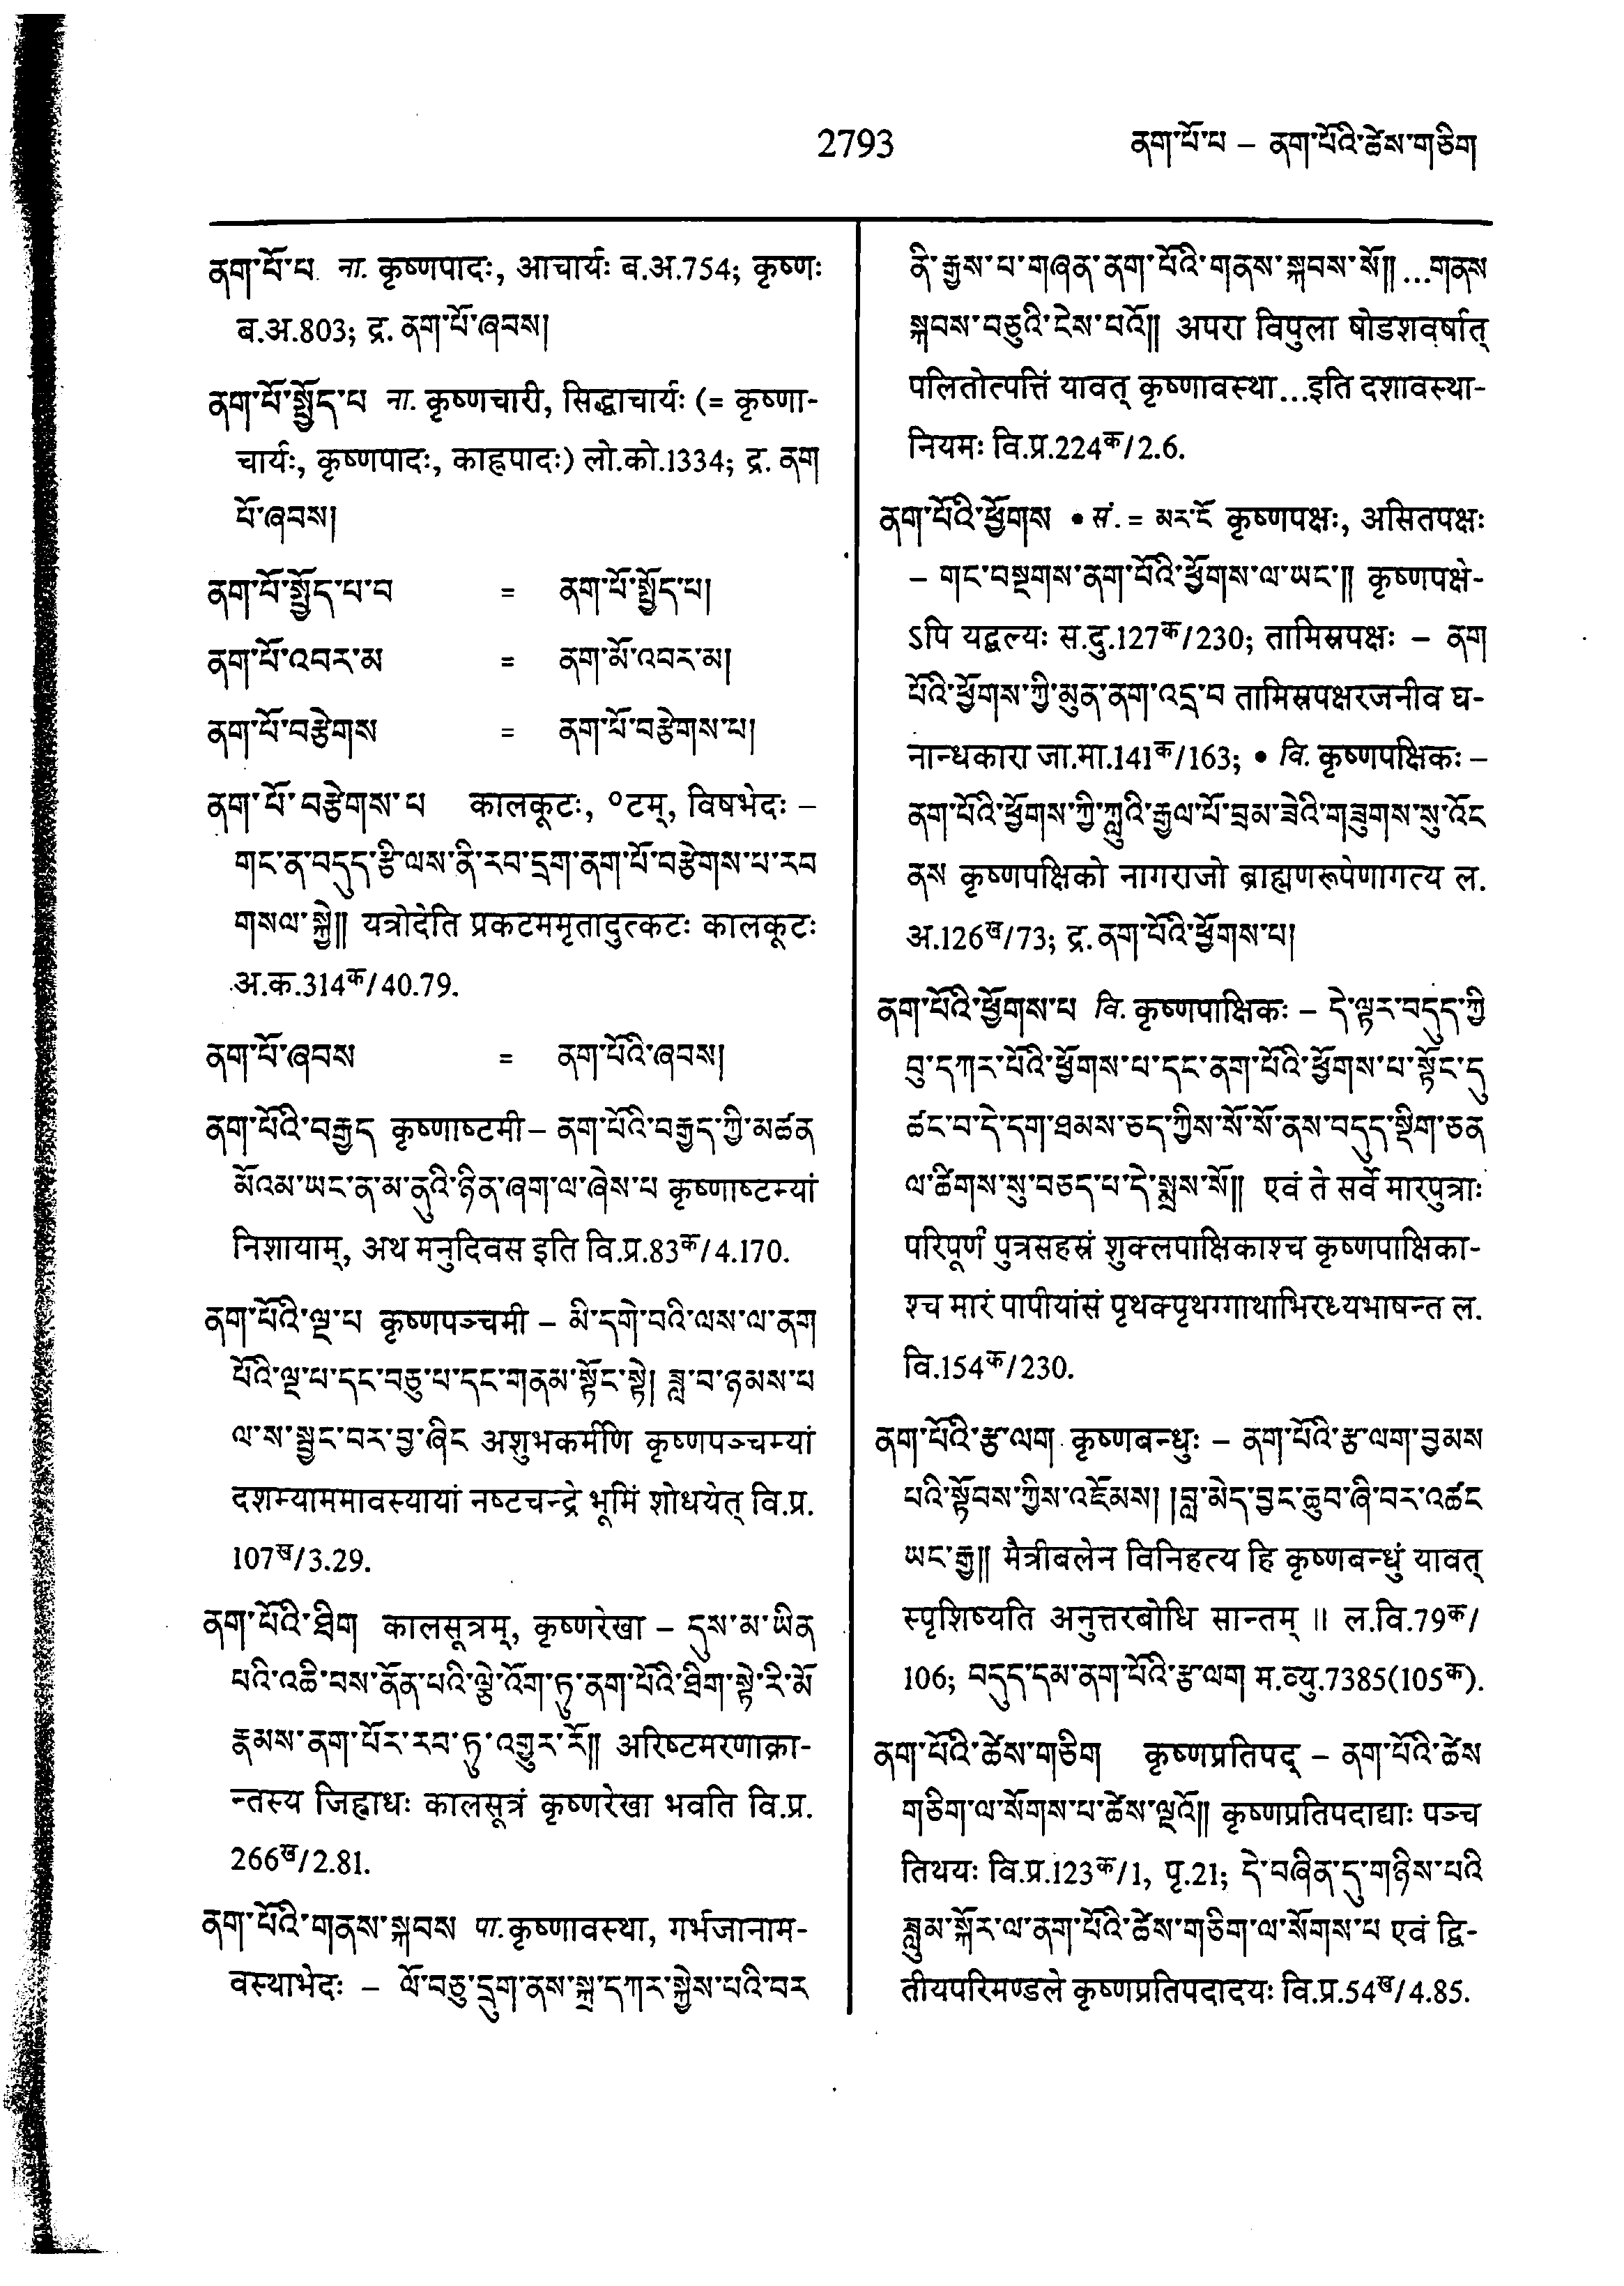 2793
ནག་པོ་པ – ནག་པོའི་ཚེས་གཅིག
ནག་པོ་པ ना. कृष्णपादः, आचार्यः ब.अ.754; कृष्णः
ब.अ.803; द्र. ནག་པོ་ཞབས།
ནག་པོ་སྤྱོད་པ ना. कृष्णचारी, सिद्धाचार्यः (= कृष्णा-
चार्यः, कृष्णपादः, काह्नपादः) लो.को.1334; द्र. ནག
པོ་ཞབས།
ནག་པོ་སྤྱོད་པ་བ = ནག་པོ་སྤྱོད་པ།
ནག་པོ་འབར་མ = ནག་མོ་འབར་མ།
ནག་པོ་བརྩེགས = ནག་པོ་བརྩེགས་པ།
ནག་པོ་བརྩེགས་པ कालकूटः, ॰टम्, विषभेदः –
གང་ན་བདུད་རྩི་ལས་ནི་རབ་དྲག་ནག་པོ་བརྩེགས་པ་རབ
གསལ་སྐྱེ༎ यत्रोदेति प्रकटममृतादुत्कटः कालकूटः
अ.क.314क/40.79.
ནག་པོ་ཞབས = ནག་པོའི་ཞབས།
ནག་པོའི་བརྒྱད कृष्णाष्टमी – ནག་པོའི་བརྒྱད་ཀྱི་མཚན
མོའམ་ཡང་ན་མ་ནུའི་ཉིན་ཞག་ལ་ཞེས་པ कृष्णाष्टम्यां
निशायाम्, अथ मनुदिवस इति वि.प्र.83क/4.170.
ནག་པོའི་ལྔ་པ कृष्णपञ्चमी – མི་དགེ་བའི་ལས་ལ་ནག
པོའི་ལྔ་པ་དང་བཅུ་པ་དང་གནམ་སྟོང་སྟེ། ཟླ་བ་ཉམས་པ
ལ་ས་སྦྱང་བར་བྱ་ཞིང अशुभकर्मणि कृष्णपञ्चम्यां
दशम्याममावस्यायां नष्टचन्द्रे भूमिं शोधयेत् वि.प्र.
107ख/3.29.
ནག་པོའི་ཐིག कालसूत्रम्, कृष्णरेखा – དུས་མ་ཡིན
པའི་འཆི་བས་ནོན་པའི་ལྕེ་འོག་ཏུ་ནག་པོའི་ཐིག་སྟེ་རི་མོ
རྣམས་ནག་པོར་རབ་ཏུ་འགྱུར་རོ༎ अरिष्टमरणाक्रा-
न्तस्य जिह्वाधः कालसूत्रं कृष्णरेखा भवति वि.प्र.
266ख/2.81.
ནག་པོའི་གནས་སྐབས पा. कृष्णावस्था, गर्भजानाम-
वस्थाभेदः – ལོ་བཅུ་དྲུག་ནས་སྐྲ་དཀར་སྐྱེས་པའི་བར
ནི་རྒྱས་པ་གཞན་ནག་པོའི་གནས་སྐབས་སོ༎ ...གནས
སྐབས་བཅུའི་ངེས་པའོ༎ अपरा विपुला षोडशवर्षात्
पलितोत्पत्तिं यावत् कृष्णावस्था...इति दशावस्था-
नियमः वि.प्र.224क/2.6.
ནག་པོའི་ཕྱོགས • सं. = མར་ངོ कृष्णपक्षः, असितपक्षः
– གང་བསྔགས་ནག་པོའི་ཕྱོགས་ལ་ཡང་༎ कृष्णपक्षे-
ऽपि यद्बल्यः स.दु.127क/230; तामिस्रपक्षः – ནག
པོའི་ཕྱོགས་ཀྱི་མུན་ནག་འདྲ་བ तामिस्रपक्षरजनीव घ-
नान्धकारा जा.मा.141क/163; • वि. कृष्णपक्षिकः –
ནག་པོའི་ཕྱོགས་ཀྱི་ཀླུའི་རྒྱལ་པོ་བྲམ་ཟེའི་གཟུགས་སུ་འོང
ནས कृष्णपक्षिको नागराजो ब्राह्मणरूपेणागत्य ल.
अ.126ख/73; द्र. ནག་པོའི་ཕྱོགས་པ།
ནག་པོའི་ཕྱོགས་པ वि. कृष्णपाक्षिकः – དེ་ལྟར་བདུད་ཀྱི
བུ་དཀར་པོའི་ཕྱོགས་པ་དང་ནག་པོའི་ཕྱོགས་པ་སྟོང་དུ
ཚང་བ་དེ་དག་ཐམས་ཅད་ཀྱིས་སོ་སོ་ནས་བདུད་སྡིག་ཅན
ལ་ཚིགས་སུ་བཅད་པ་དེ་སྨྲས་སོ༎ एवं ते सर्वे मारपुत्राः
परिपूर्णं पुत्रसहस्रं शुक्लपाक्षिकाश्च कृष्णपाक्षिका-
श्च मारं पापीयांसं पृथक्पृथग्गाथाभिरध्यभाषन्त ल.
वि.154क/230.
ནག་པོའི་རྩ་ལག कृष्णबन्धुः – ནག་པོའི་རྩ་ལག་བྱམས
པའི་སྟོབས་ཀྱིས་འཇོམས། །བླ་མེད་བྱང་ཆུབ་ཞི་བར་འཚང
ཡང་རྒྱ༎ मैत्रीबलेन विनिहत्य हि कृष्णबन्धुं यावत्
स्पृशिष्यति अनुत्तरबोधि सान्तम् ॥ ल.वि.79क/
106; བདུད་དམ་ནག་པོའི་རྩ་ལག म.व्यु.7385(105क).
ནག་པོའི་ཚེས་གཅིག कृष्णप्रतिपद् – ནག་པོའི་ཚེས
གཅིག་ལ་སོགས་པ་ཚེས་ལྔའོ༎ कृष्णप्रतिपदाद्याः पञ्च
तिथयः वि.प्र.123क/1, पृ.21; དེ་བཞིན་དུ་གཉིས་པའི
ཟླུམ་སྐོར་ལ་ནག་པོའི་ཚེས་གཅིག་ལ་སོགས་པ एवं द्वि-
तीयपरिमण्डले कृष्णप्रतिपदादयः वि.प्र.54ख/4.85.